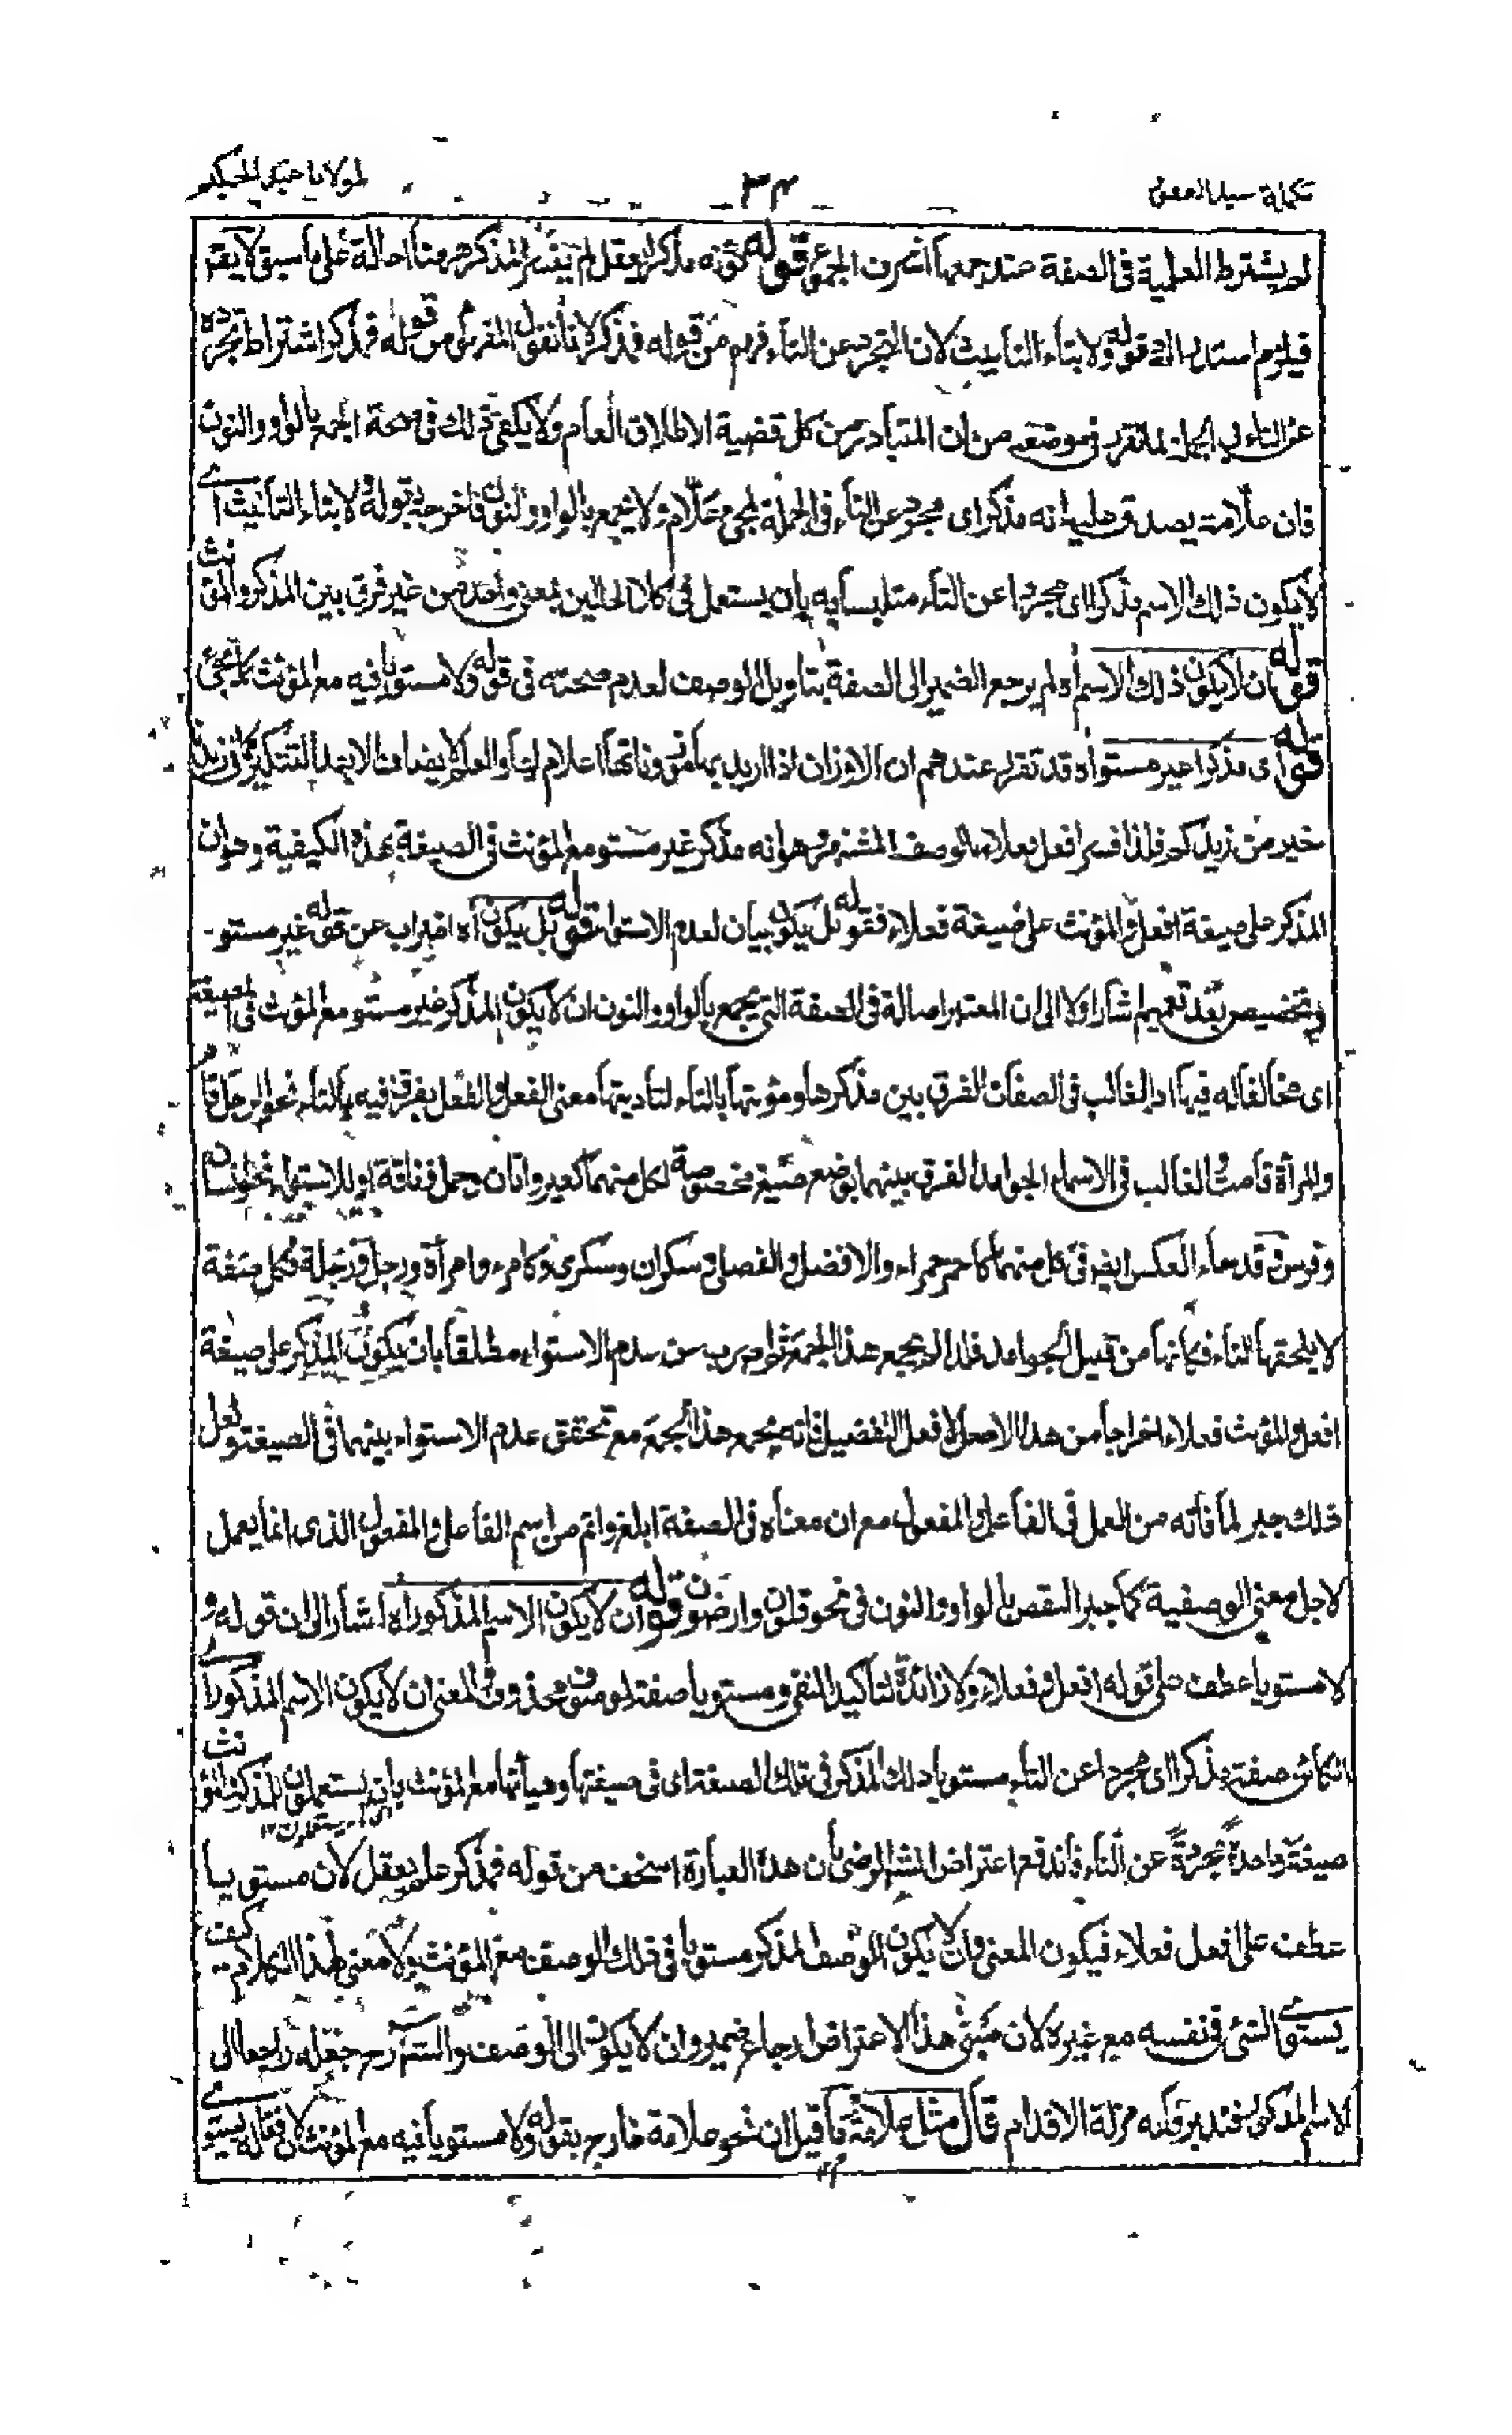 تكملة عبد الغفور
٣٤
لمولانا عبد الحكيم
لم يشترط العلمية في الصفة عند جمعها اشرف الجموع قوله كونه مذكرا يعقل لم يفسر المذكر ههنا احالة على ما سبق لا يقر
فيلزم استدراك قوله ولا بتاء التأنيث لان التجرد عن التاء فهم من قوله فمذكر لانا نقول المفهوم من قوله فمذكر اشتراط تجرده
عن التاء في الجملة لما تقرر في موضعه من ان المتبادر من كل قضية الاطلاق العام ولا يكفي ذلك في صحة الجمع بالواو والنون
فان علامة يصدق عليه انه مذكر اى مجرد عن التاء في الجملة لمجئ علام ولا يجمع بالواو والنون فاخرجه بقوله لا بتاء التأنيث اے
لا يكون ذلك الاسم مذكرا اى مجردا عن التاء متلبسا به بان يستعمل في كلا الحالين بمعنى واحد من غير فرق بين المذكر والمؤنث
قوله ان لا يكون ذلك الاسم اه لم يرجع الضمير الى الصفة بتاويل الوصف لعدم صحته في قوله ولا مستويا فيه مع المؤنث كما يجئ
قوله اى مذكرا غير مستو اه قد تقرر عندهم ان الاوزان اذا اريد بها موزوناتها اعلام لها والعلم لا يضاف الا بعد التنكير كما في زيدنا
خير من زيدكم فلذا فسر افعل فعلاء بالوصف المشتهر وهو انه مذكر غير مستو مع المؤنث في الصيغة بهذه الكيفية وهو ان
المذكر على صيغة افعل والمؤنث على صيغة فعلاء فقوله بل يكون بيان لعدم الاستواء قوله بل يكون اه اضراب عن قوله غير مستو
وتخصيص بعد تعميم اشار اولا الى ان المعتبر اصالة في الصفة التي تجمع بالواو والنون ان لا يكون المذكر غير مستو مع المؤنث في الصيغة
اى مخالفا له فيها اذ الغالب في الصفات الفرق بين مذكرها ومؤنثها بالتاء لتأديتها معنى الفعل والفعل يفرق فيه بالتاء نحو الرجل قام
والمرأة قامت والغالب في الاسماء الجوامد الفرق بينهما بوضع صيغ مخصوصة لكل منهما كعير واتان وجمل وناقة او بالاستواء نحو انسان
وفرس وقد جاء العكس ايضا في كل منهما كاحمر حمراء والافضل والفضلى وسكران وسكرى وكامرء وامرأة ورجل ورجلة فكل صفة
لا يلحقها التاء فكانها من قبيل الجوامد فلذا لم يجمع هذا الجمع ثم اضرب عن عدم الاستواء مطلقا بان يكون المذكر على صيغة
افعل والمؤنث فعلاء اخراجا من هذا الاصل لافعل التفضيل فانه يجمع هذا الجمع مع تحقق عدم الاستواء بينهما في الصيغة ولعل
ذلك جبر لما فاته من العمل في الفاعل والمفعول مع ان معناه في الصفة ابلغ واتم من اسم الفاعل والمفعول الذى انما يعمل
لاجل معنى الوصفية كما جبر النقص بالواو والنون في نحو قلون وارضون قوله ان لا يكون الاسم المذكور اه اشار الى ان قوله و
لا مستويا عطف على قوله افعل فعلاء ولا زائدة لتأكيد النفي ومستويا صفة لموصوف محذوف والمعنى ان لا يكون الاسم المذكور اے
الكائن صفة مذكرا اى مجردا عن التاء مستويا ذلك المذكر في تلك الصفة اى في صيغتها وهيأتها مع المؤنث بان يستعملون للمذكر والمؤنث
صيغة واحدة مجردة عن التاء فاندفع اعتراض الشيخ الرضى بان هذه العبارة اسخف من قوله فمذكر علم يعقل لان مستويا
عطف على افعل فعلاء فيكون المعنى وان لا يكون الوصف المذكر مستويا في ذلك الوصف مع المؤنث ولا معنى لهذا الكلام كيف
يستوى الشئ في نفسه مع غيره لان مبنى هذا الاعتراض ارجاع ضمير وان لا يكون الى الوصف والش رح جعله راجعا الى
الاسم المذكور فتدبر فانه مزلة الاقدام قال مثل علامة ما قيل ان نحو علامة خارج بقوله ولا مستويا فيه مع المؤنث لان فعالة يستوى